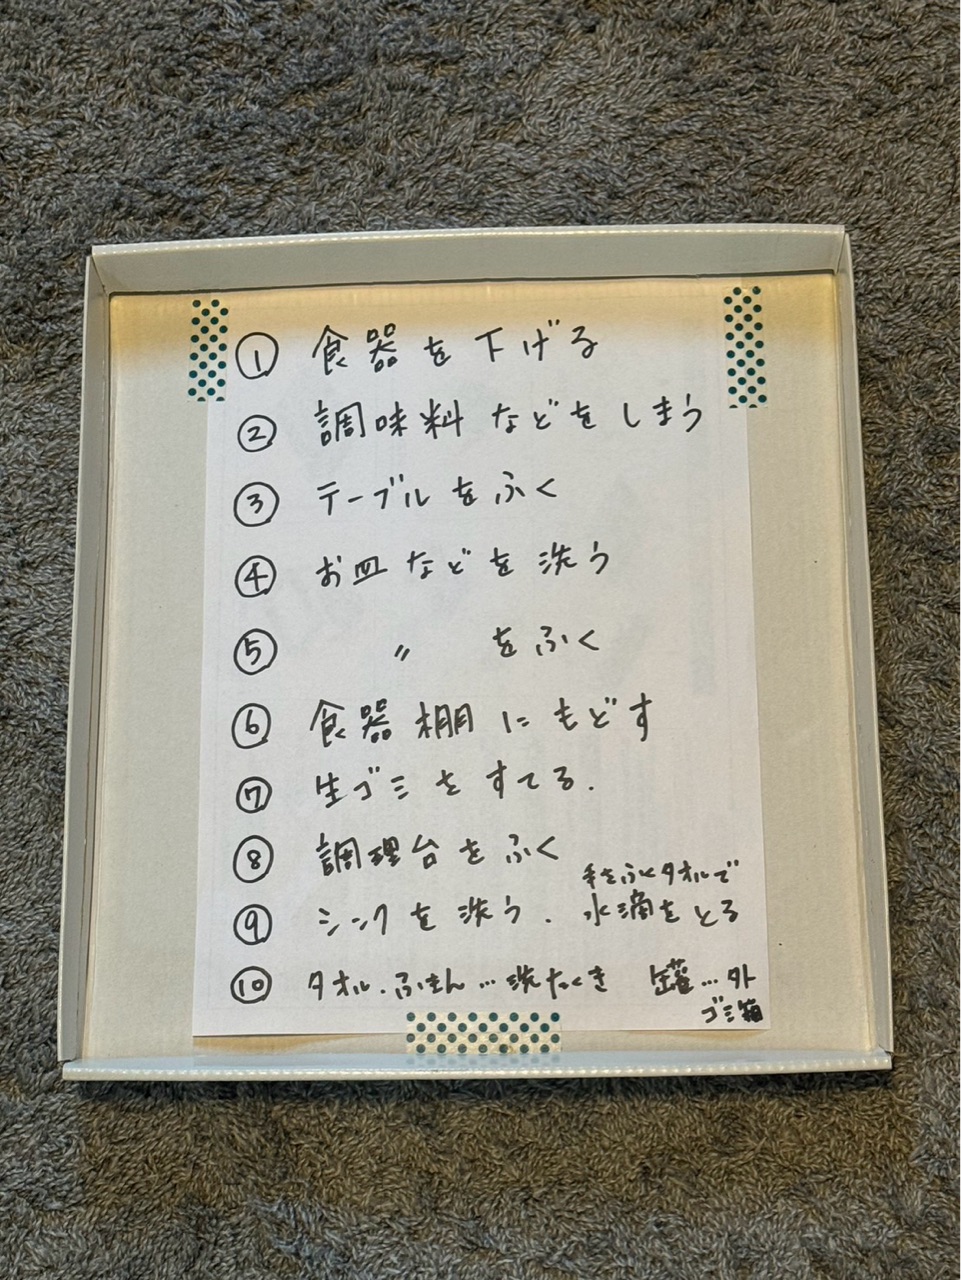 ① 食器を下げる
② 調味料などをしまう
③ テーブルをふく
④ お皿などを洗う
⑤ 〃 をふく
⑥ 食器棚にもどす
⑦ 生ゴミをすてる.
⑧ 調理台をふく
⑨ シンクを洗う. 手をふくタオルで
水滴をとる
⑩ タオル.ふきん…洗たくき 罐…外
ゴミ箱